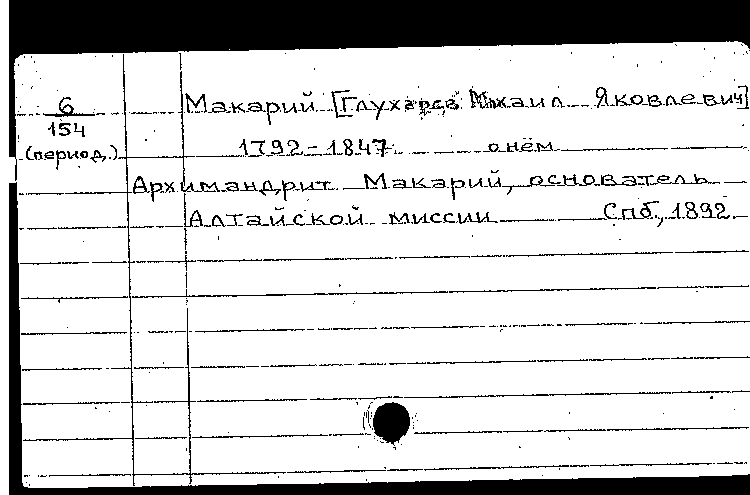 6
154
(период.)
Макарий [Глухарев Михаил Яковлевич]
1792-1847 о нём
Архимандрит Макарий, основатель
Алтайской миссии Спб, 1892